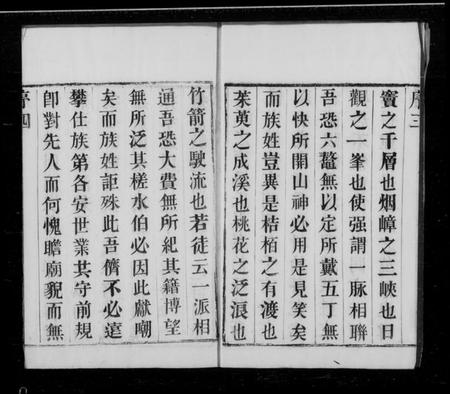 序三
竇之千層也烟嶂之三峽也日
觀之一峯也使强謂一脉相聯
吾恐六鼇無以定所戴五丁無
以快所開山神必用是見笑矣
而族姓豈異是桔栢之有渡也
茱萸之成溪也桃花之泛浪也
竹箭之駛流也若徒云一派相
通吾恐大費無所紀其籍博望
無所泛其槎水伯必因此獻嘲
矣而族姓詎殊此吾儕不必遠
攀仕族第各安世業共守前規
卽對先人而何愧瞻廟貌而無
序四